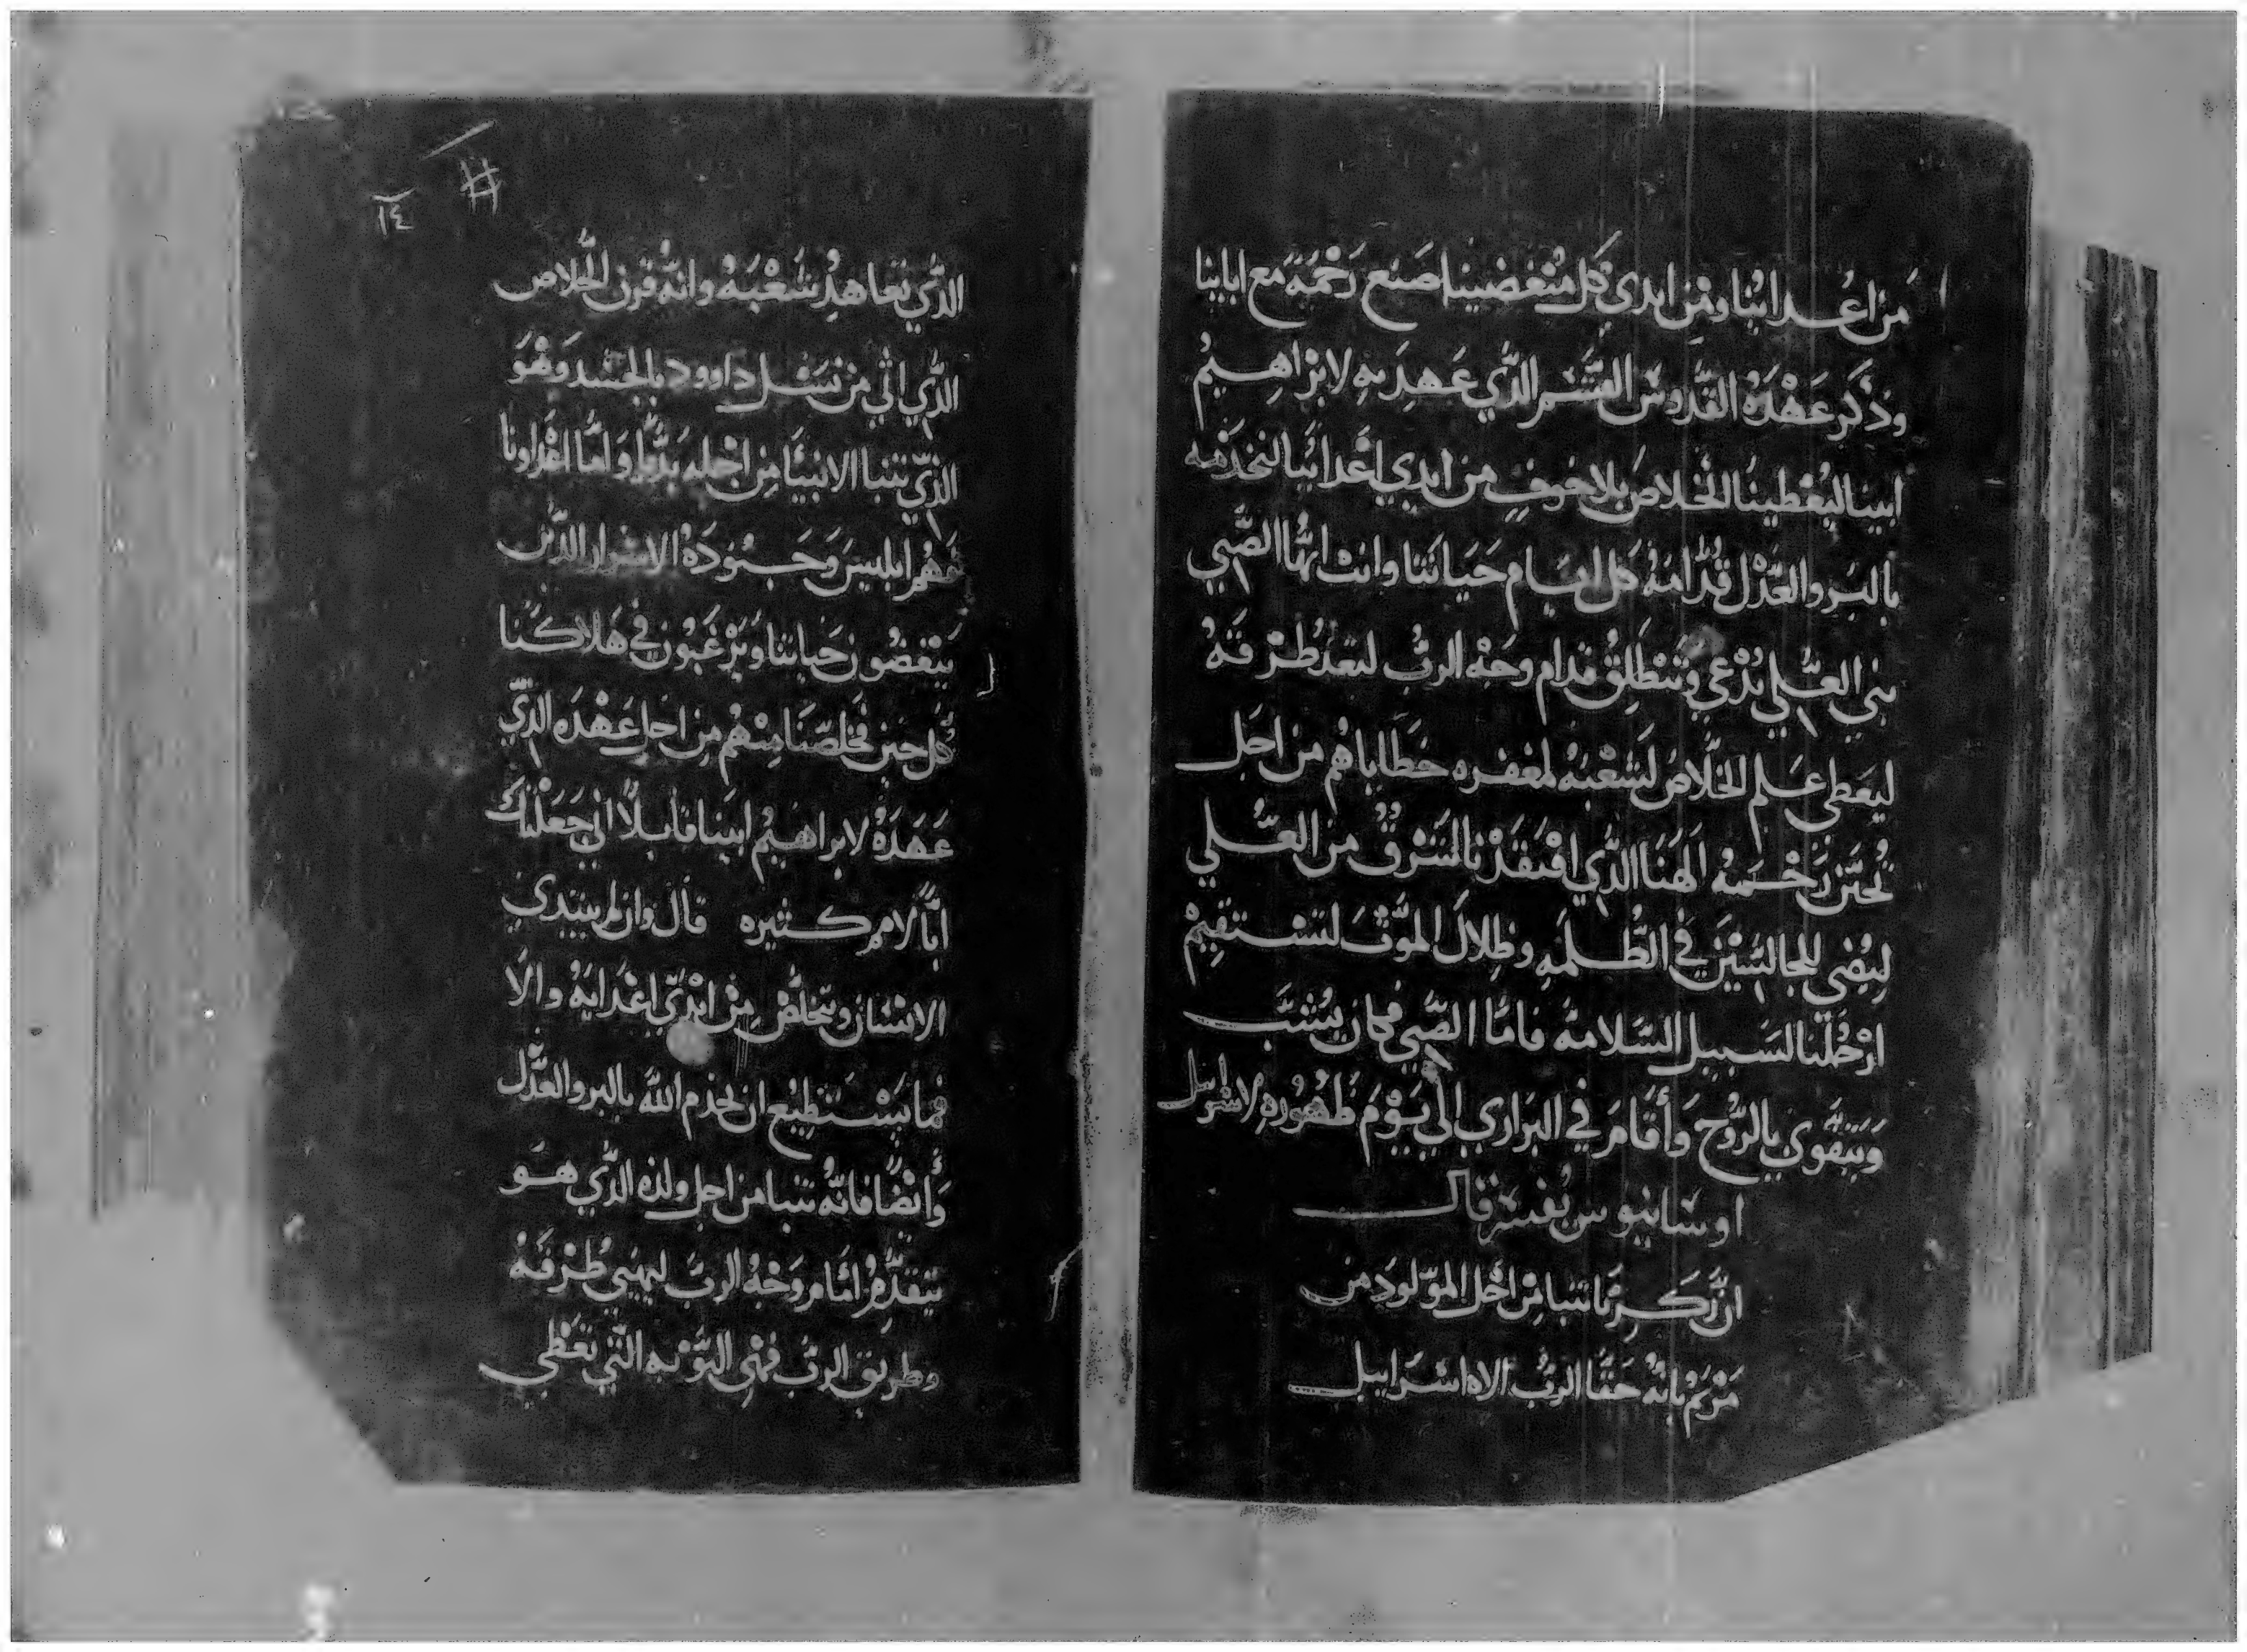 من اعدائنا ومن ايدي كل مبغضينا صنع رحمة مع ابائنا
وذكر عهده القدوس القسم الذي عهد به لابراهيم
ابينا ليعطينا الخلاص بلا خوف من ايدي اعدائنا لنخدمه
بالبر والعدل قدامه كل ايام حياتنا وانت ايها الصبي
نبي العلي تدعي وتنطلق قدام وجه الرب لتعد طرقه
ليعطي علم الخلاص لشعبه لمغفره خطاياهم من اجل
تحنن رحمه الهنا الذي افتقدنا بالمشرق من العلي
ليضي للجالسين في الظلمه وظلال الموت لتستقيم
ارجلنا لسبيل السلامه فاما الصبي فكان يشب
ويتقوي بالروح وأقام في البراري الي يوم ظهوره لاسراييل
اوسانيوس يفسر قال
ان زكريا تنبا من اجل المولود من
مريم بانه حقا الرب الاه اسراييل
١٤
الذي تعاهد شعبه وانه قرن الخلاص
الذي اتي من نسل داوود بالجسد وهو
الذي تنبا الانبيا من اجله بديا واما اعداونا
فهم ابليس وجنوده الاشرار الذين
يبغضون حياتنا ويرغبون في هلاكنا
كل حين فخلصنا منهم من اجل عهده الذي
عهده لابراهيم ابينا قايلا اني جعلتك
ابا لامم كثيره قال وان لم يبتدي
الانسان ويتخلص من ايدي اعدايه والا
فما يستطيع ان يخدم الله بالبر والعدل
وايضا فانه تنبا من اجل ولده الذي هو
يتقدم امام وجه الرب ليهيي طرقه
وطريق الرب فهي التوبه التي تعطي